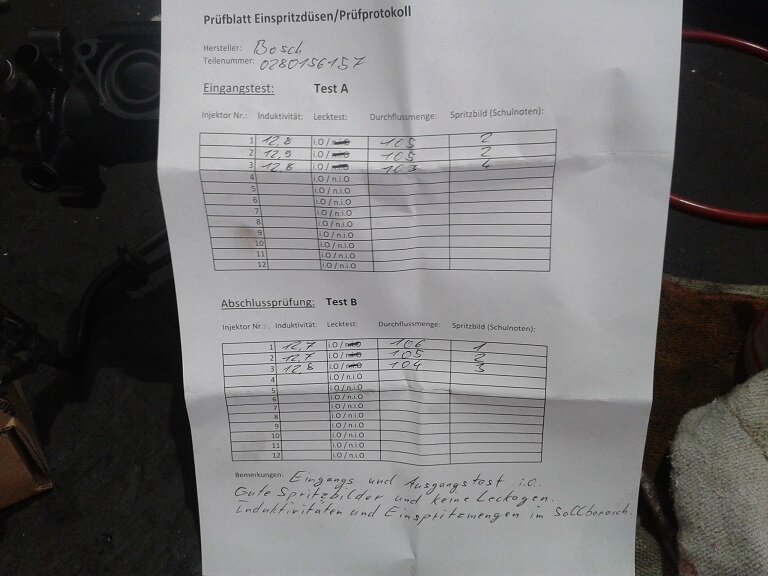 Prüfblatt Einspritzdüsen/Prüfprotokoll
Hersteller: Bosch
Teilenummer: 0280156157
Eingangstest: Test A
Injektor Nr.: Induktivität: Lecktest: Durchflussmenge: Spritzbild (Schulnoten):
1 12,8 i.O / n.i.O 105 2
2 12,9 i.O / n.i.O 105 2
3 12,8 i.O / n.i.O 103 4
4 i.O / n.i.O
5 i.O / n.i.O
6 i.O / n.i.O
7 i.O / n.i.O
8 i.O / n.i.O
9 i.O / n.i.O
10 i.O / n.i.O
11 i.O / n.i.O
12 i.O / n.i.O
Abschlussprüfung: Test B
Injektor Nr.: Induktivität: Lecktest: Durchflussmenge: Spritzbild (Schulnoten):
1 12,7 i.O / n.i.O 106 1
2 12,7 i.O / n.i.O 105 2
3 12,8 i.O / n.i.O 104 3
4 i.O / n.i.O
5 i.O / n.i.O
6 i.O / n.i.O
7 i.O / n.i.O
8 i.O / n.i.O
9 i.O / n.i.O
10 i.O / n.i.O
11 i.O / n.i.O
12 i.O / n.i.O
Bemerkungen: Eingangs und Ausgangstest i.O.
Gute Spritzbilder und keine Leckagen.
Induktivitäten und Einspritzmengen im Sollbereich.